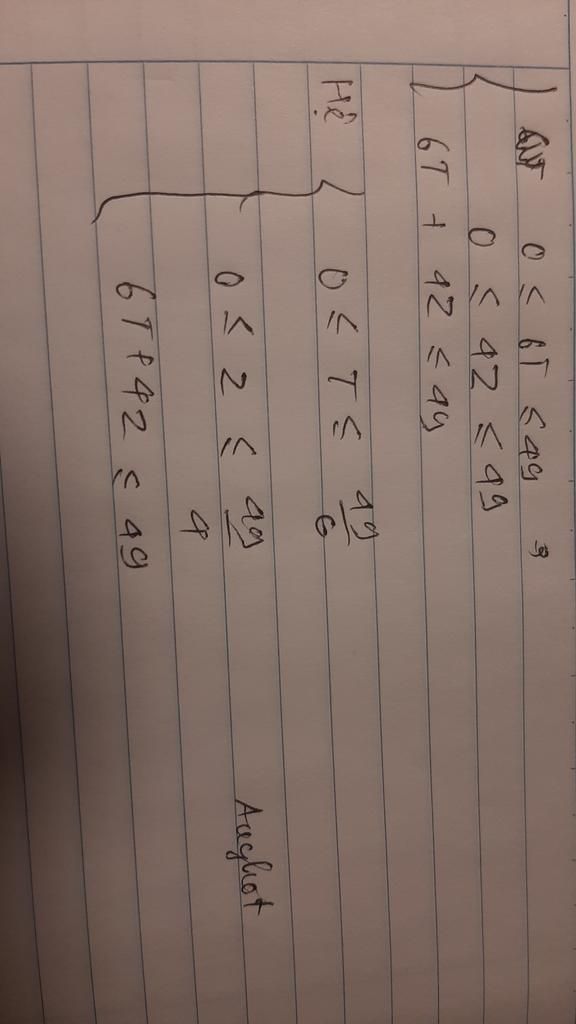 0 ≤ 6T ≤ 49,
0 ≤ 4Z ≤ 49
6T + 4Z ≤ 49
Hệ
0 ≤ T ≤ 49/6
0 ≤ Z ≤ 49/4
6T + 4Z ≤ 49